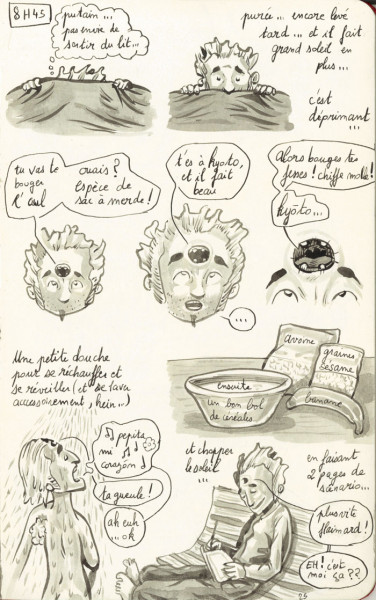 8H45
putain...
pas envie de
sortir du lit...
purée... encore levé
tard... et il fait
grand soleil en
plus...
c'est
déprimant
...
tu vas te
bouger
l'
ouais?
espèce de
sac à merde!
t'es à kyoto,
et il fait
beau
...
Alors bouges tes
fesses! chiffe molle!
kyōto...
Une petite douche
pour se réchauffer et
se réveiller (et se laver
accessoirement, hein...)
arome
graines
sésame
banane
ensuite
un bon bol
de céréales...
pepita
mi
corazon
ta gueule!
ah euh
... ok
et choper
le soleil
...
en faisant
2 pages de
scénario...
plus vite
flemmard!
EH! c'est
moi ça??
25